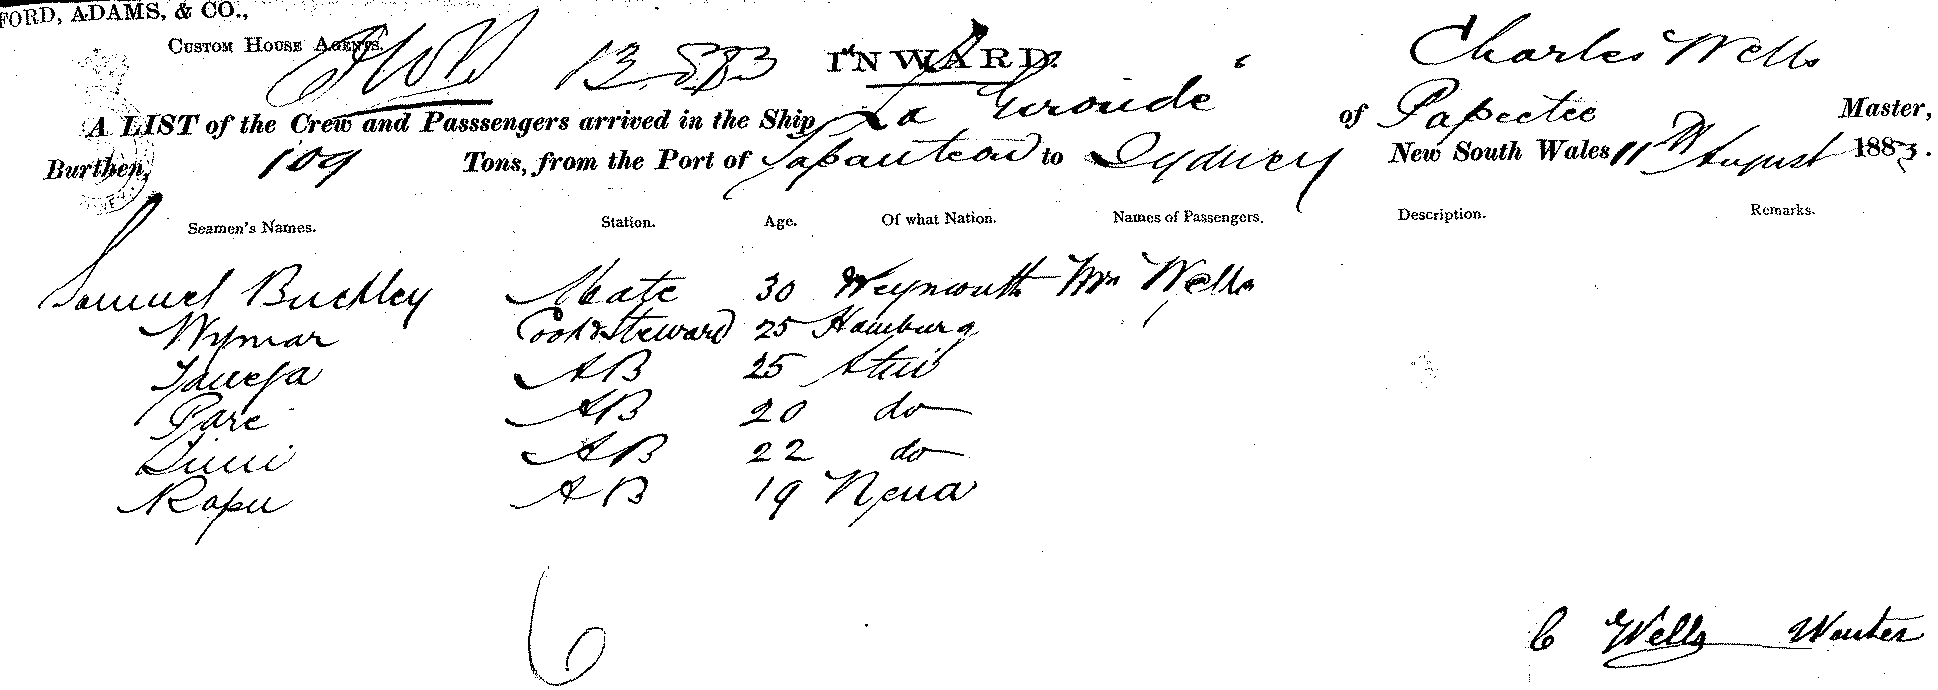 FORD, ADAMS, & CO.,
CUSTOM HOUSE AGENTS.
13 883 INWARD. Charles Wells
A LIST of the Crew and Passsengers arrived in the Ship La Gironde of Papeetee Master,
Burthen, 109 Tons, from the Port of to Sydney New South Wales 11th August 1883.
Seamen's Names. Station. Age. Of what Nation. Names of Passengers. Description. Remarks.
Samuel Buckley Mate 30 Weymouth Mrs Wells
Wymar Cook & Steward 25 Hamburg
AB 25 Atui
Pare AB 20 do
AB 22 do
Rapu AB 19
6
C Wells Master